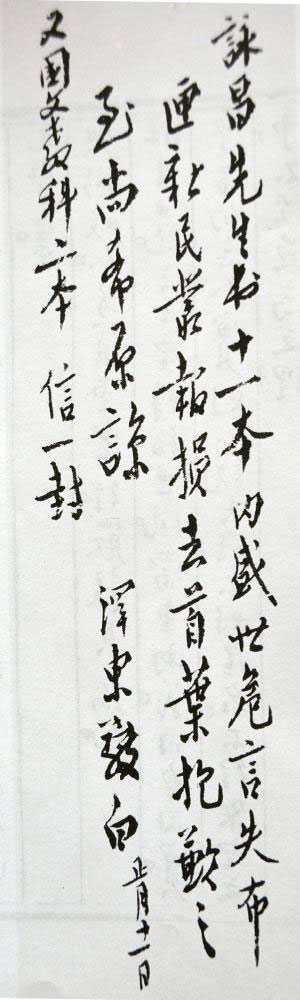 詠昌先生书十一本內盛世危言失布
匣新民叢報損去首葉抱歉之
至尚希原諒 澤東敬白 正月十一日
又國文教科二本 信一封